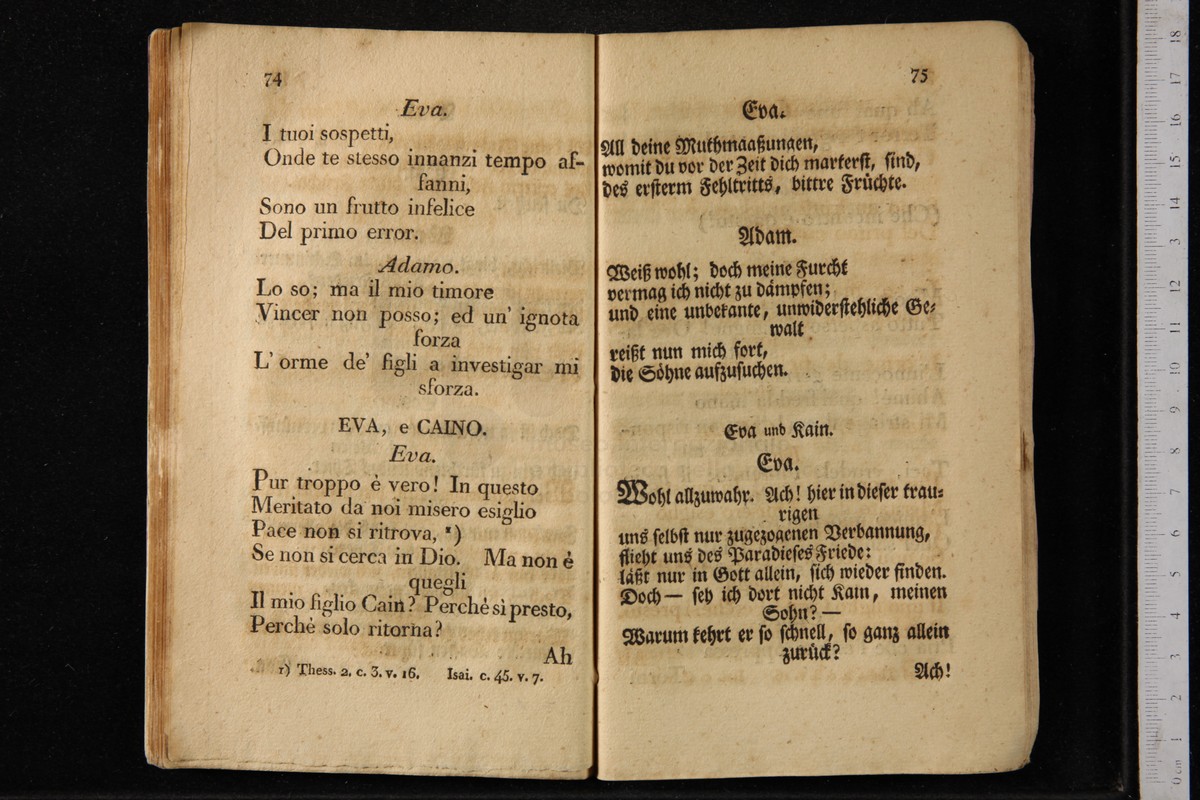 74
Eva.
I tuoi sospetti,
Onde te stesso innanzi tempo af-
fanni,
Sono un frutto infelice
Del primo error.
Adamo.
Lo so; ma il mio timore
Vincer non posso; ed un' ignota
forza
L' orme de' figli a investigar mi
sforza.
EVA, e CAINO.
Eva.
Pur troppo è vero! In questo
Meritato da noi misero esiglio
Pace non si ritrova, 1)
Se non si cerca in Dio. Ma non è
quegli
Il mio figlio Cain? Perchè sì presto,
Perchè solo ritorna?
Ah
1) Thess. 2. c. 3. v. 16. Isai. c. 45. v. 7.
75
Eva.
All deine Muthmaaßungen,
womit du vor der Zeit dich marterst, sind,
des ersterm Fehltritts, bittre Früchte.
Adam.
Weiß wohl; doch meine Furcht
vermag ich nicht zu dämpfen;
und eine unbekante, unwiderstehliche Ge-
walt
reißt nun mich fort,
die Söhne aufzusuchen.
Eva und Kain.
Eva.
Wohl allzuwahr. Ach! hier in dieser trau-
rigen
uns selbst nur zugezogenen Verbannung,
flieht uns des Paradieses Friede:
läßt nur in Gott allein, sich wieder finden.
Doch — seh ich dort nicht Kain, meinen
Sohn? —
Warum kehrt er so schnell, so ganz allein
zurück?
Ach!
0 cm 1 2 3 4 5 6 7 8 9 10 11 12 13 14 15 16 17 18